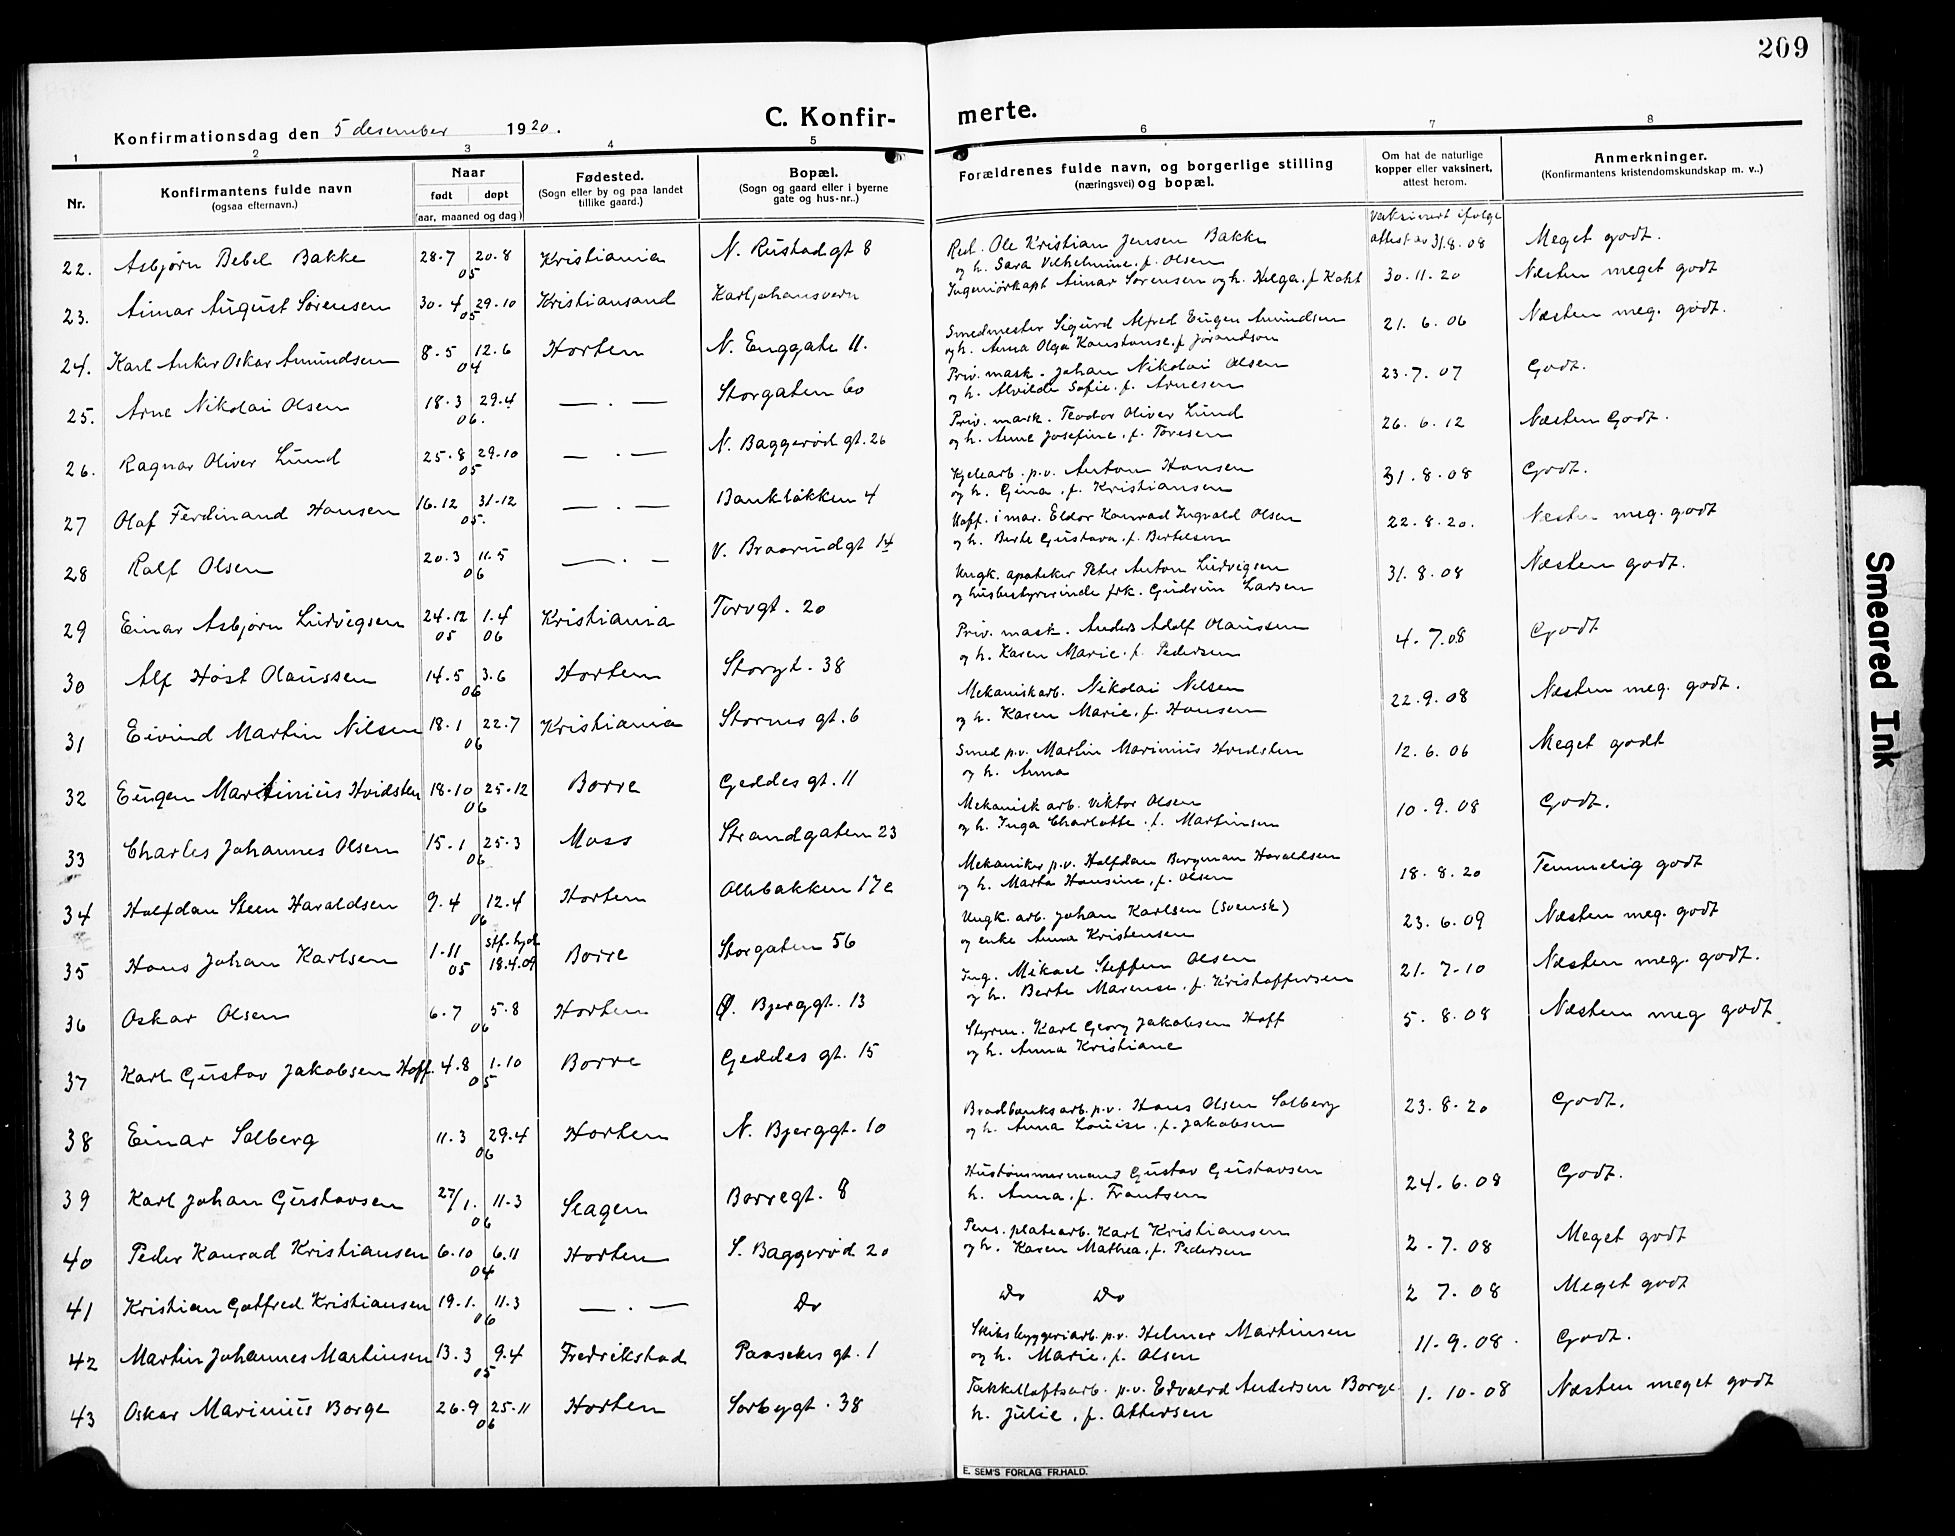 209
C. Konfirmerte.
Konfirmationsdag den 5 desember 1920.
1 2 3 4 5 6 7 8
Nr.
Konfirmantens fulde navn
(ogsaa efternavn.)
Naar
født døpt
(aar, maaned og dag)
Fødested.
(Sogn eller by og paa landet
tillike gaard.)
Bopæl.
(Sogn og gaard eller i byerne
gate og hus-nr.)
Forældrenes fulde navn, og borgerlige stilling
(næringsvei) og bopæl.
Om hat de naturlige
kopper eller vaksinert,
attest herom.
Anmerkninger.
(Konfirmantens kristendomskundskap m. v..)
Vaksinert ifølge
22. Asbjørn Bebel Bakke 28.7 05 20.8 Kristiania N. Rustadgt 8 Red. Ole Kristian Jensen Bakke attest av 31.8.08 Meget godt.
og h. Sara Vilhelmine, f. Olsen
23. Aimar August Sørensen 30.4 05 29.10 Kristiansand Karljohansvern Ingeniørkapt Aimar Sørensen og h. Helga, f. Kahl 30.11.20 Næsten meget godt
24. Karl Anker Oskar Amundsen 8.5 04 12.6 Horten N. Enggate 11. Smedmester Sigurd Alfred Eugen Amundsen 21.6.06 Næsten meg. godt.
og h. Anna Olga Konstanse, f. Jørandson
25. Arne Nikolai Olsen 18.3 06. 29.4 — . — Storgaten 60 Priv. mask. Johan Nikolai Olsen 23.7.07 Godt.
og h. Alvilde Sofie, f. Arnesen
26. Ragnar Oliver Lund 25.8 05 29.10 — . — N. Baggerød gt. 26 Priv. mask. Teodor Oliver Lund 26.6.12 Næsten Godt.
og h. Anne Josefine, f. Toresen
27 Olaf Ferdinand Hansen 16.12 05. 31.12 — . — Bankløkken 4 Kjelearb. p.v. Anton Hansen 31.8.08 Godt.
og h. Gina, f. Kristiansen
28 Rolf Olsen 20.3 06 11.5 — . — V. Braarudgt 14 Uoff. i mar. Eldor Konrad Ingvald Olsen 22.8.20. Næsten meg. godt
og h. Berte Gustava, f. Bertelsen
29 Einar Asbjørn Ludvigsen 24.12 05 1.4 06 Kristiania Torvgt. 20 Ungk. apoteker Peter Anton Ludvigsen 31.8.08 Næsten godt.
og husbestyrerinde frk. Gudrun Larsen
30 Alf Høst Olaussen 14.5 06 3.6 Horten Storgt. 38 Priv. mask. Anders Adolf Olaussen 4.7.08 Godt
og h. Karen Marie, f. Pedersen
31 Eivind Martin Nilsen 18.1 06 22.7 Kristiania Storms gt. 6 Mekaniskarb. Nikolai Nilsen 22.9.08 Næsten meg. godt.
og h. Karen Marie, f. Hansen
32 Eugen Martinius Hvidsten 18.10 06 25.12 Borre Geddes gt. 11 Smed p.v. Martin Marinius Hvidsten 12.6.06 Meget godt
og h. Anna
33 Charles Johannes Olsen 15.1 06 25.3 Moss Strandgaten 23 Mekanisk arb. Viktor Olsen 10.9.08 Godt.
og h. Inga Charlotte, f. Martinsen
34 Halfdan Steen Haraldsen 9.4 06 12.4 Horten Ollebakken 17c Mekaniker p.v. Halfdan Bergman Haraldsen 18.8.20 Temmelig godt
og h. Marta Hansine, f. Olsen
35 Hans Johan Karlsen 1.11 05 stf. hjd. 18.4.09 Borre Storgaten 56 Ungk. arb. Johan Karlsen (Svensk) 23.6.09 Næsten meg. godt
og enke Anna Kristensen
36 Oskar Olsen 6.7 06 5.8 Horten Ø. Bjerggt. 13 Ing. Mikael Steffen Olsen 21.7.10 Næsten meg. godt.
og h. Berte Marense, f. Kristoffersen
37 Karl Gustav Jakobsen Hoff 4.8 05 1.10 Borre Geddes gt. 15 Styrm. Karl Georg Jakobsen Hoff 5.8.08 Næsten meg godt.
og h. Anna Kristiane
38 Einar Solberg 11.3 06 29.4 Horten N. Bjerggt. 10 Bradbænksarb. p.v. Hans Olsen Solberg 23.8.20 Godt.
og h. Anna Louise, f. Jakobsen
39 Karl Johan Gustavsen 27/1. 06 11.3 Slagen Borregt. 8 Hustømmermand Gustav Gustavsen 24.6.08 Godt.
h. Anna, f. Frantsen
40 Peder Konrad Kristiansen 6.10 04 6.11 Horten S. Baggerød 20 Pens. platearb. Karl Kristiansen 2.7.08 Meget godt
og h. Karen Mathea, f. Pedersen
41 Kristian Gotfred Kristiansen 19.1. 06 11.3 — . — Do Do Do 2 7.08 Meget godt
42 Martin Johannes Martinsen 13.3 05 9.4 Fredrikstad Paasches gt. 1 Skibsbyggeriarb. p.v. Helmer Martinsen 11.9.08. Godt.
og h. Marie, f. Olsen
43 Oskar Marinius Borge 26.9 06 25.11 Horten Sorbygt. 38 Takkelloftsarb. p.v. Edvard Andersen Borge 1.10.08 Næsten meget godt
h. Julie, f. Ottersen
E. SEM'S FORLAG FR.HALD.
Smeared Ink